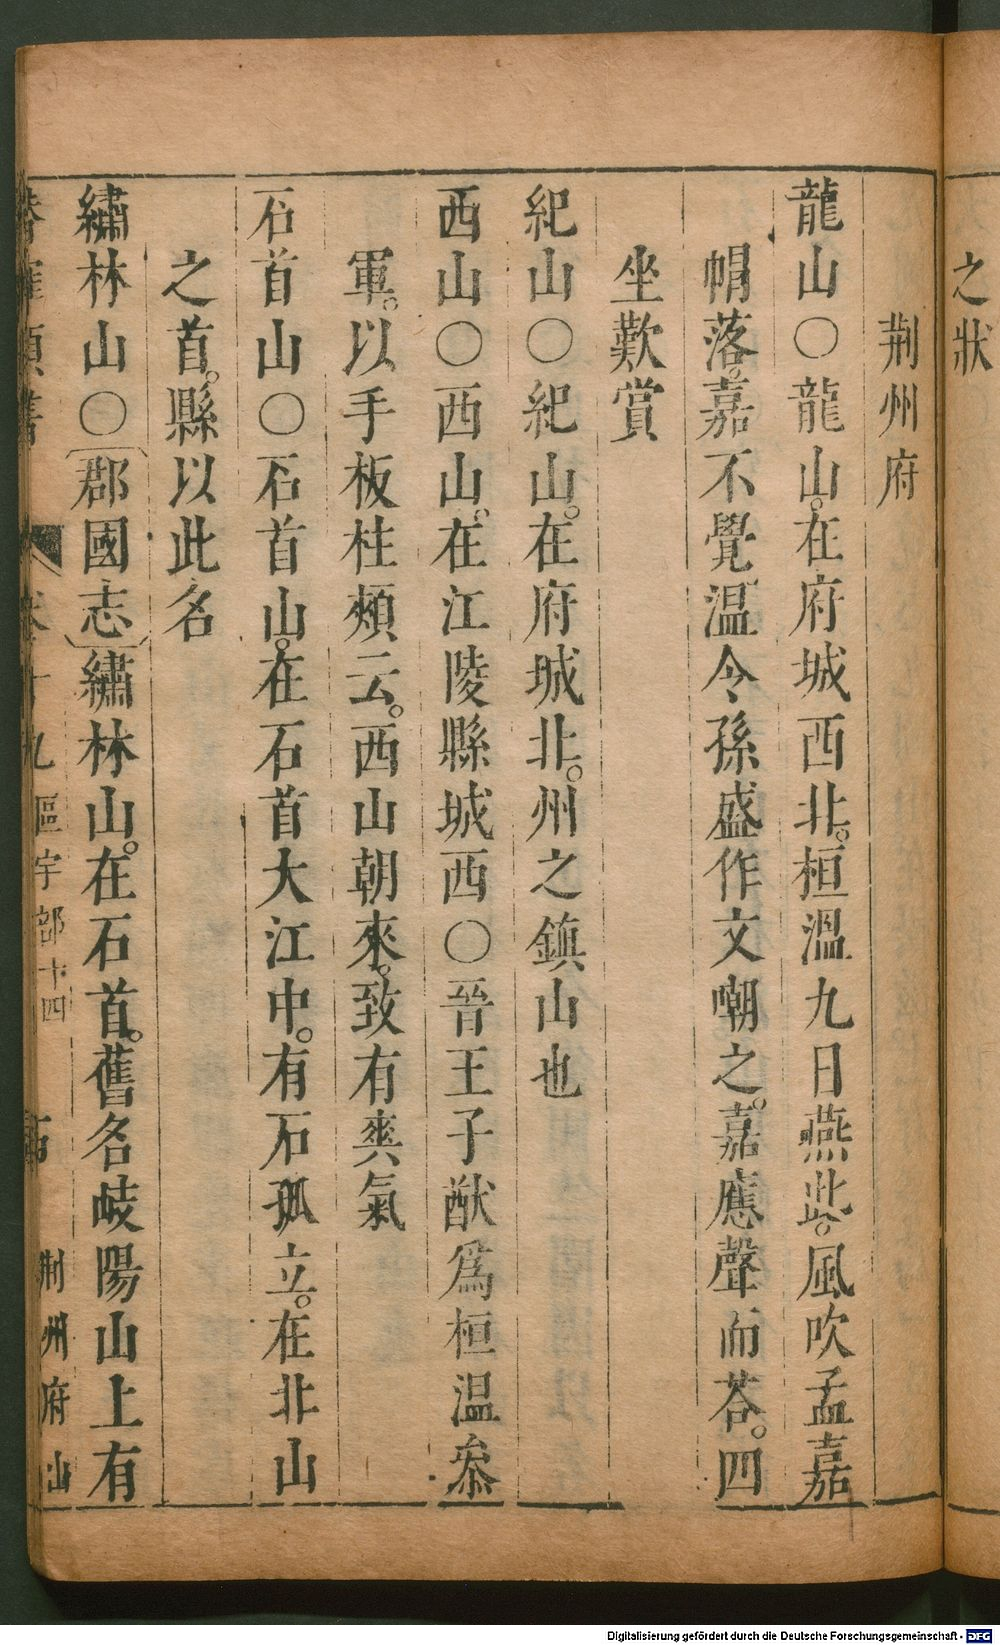 之狀
荆州府
龍山○龍山。在府城西北。桓溫九日燕此。風吹孟嘉
帽落。嘉不覺温令孫盛作文嘲之。嘉應聲而荅。四
坐歎賞
紀山○紀山。在府城北。州之鎮山也
西山○西山。在江陵縣城西○晉王子猷爲桓温叅
軍。以手板柱頰云。西山朝來。致有爽氣
石首山○石首山。在石首大江中。有石孤立。在北山
之首。縣以此名
繡林山○郡國志繡林山。在石首。舊名岐陽山上有
類書 卷十九 區宇部十四 荆州府山
Digitalisierung gefördert durch die Deutsche Forschungsgemeinschaft - DFG